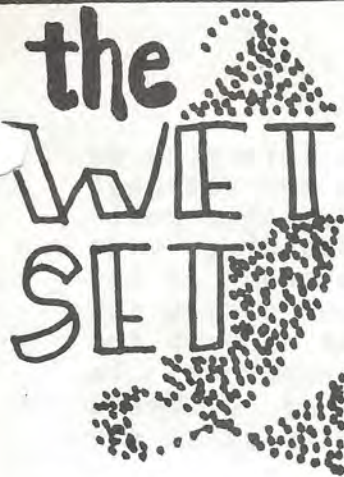 the
WET
SET